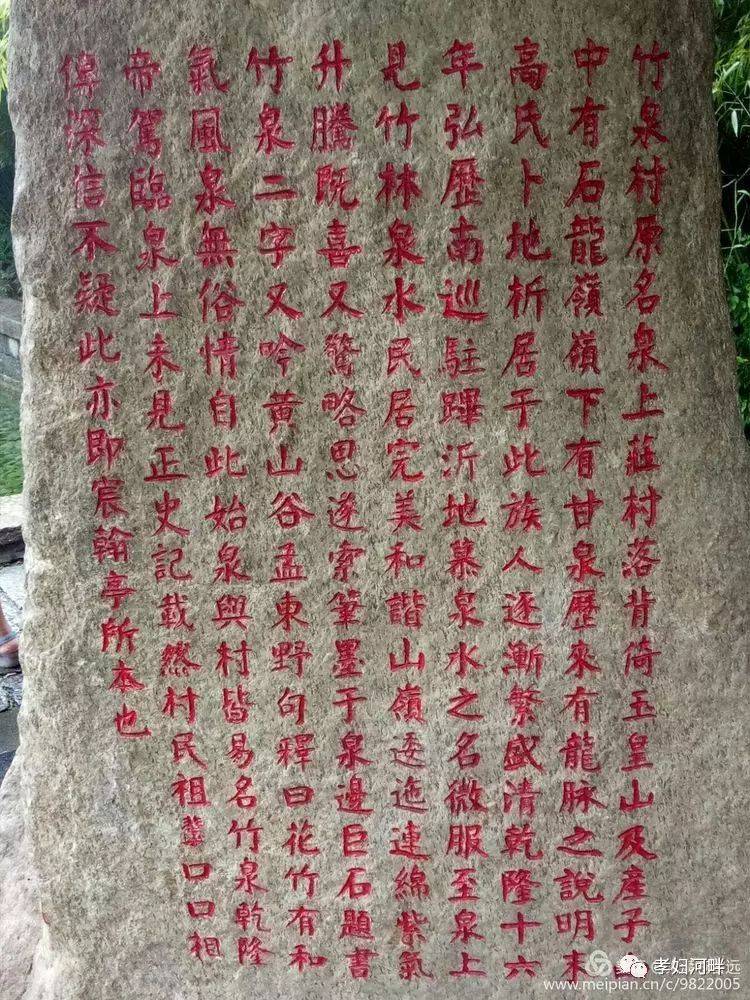 竹泉村原名泉上莊村落背倚玉皇山及產子
中有石龍嶺嶺下有甘泉歷來有龍脉之說明末
高氏卜地析居于此族人逐漸繁盛清乾隆十六
年弘歷南巡駐蹕沂地慕泉水之名微服至泉上
見竹林泉水民居完美和諧山嶺逶迤連綿紫氣
升騰既喜又驚略思遂索筆墨于泉邊巨石題書
竹泉二字又吟黄山谷孟東野句釋曰花竹有和
氣風泉無俗情自此始泉與村皆易名竹泉乾隆
帝駕臨泉上未見正史記載然村民祖輩口口相
傳深信不疑此亦即宸翰亭所本也
孝妇河畔
远
www.meipian.cn/c/9822005